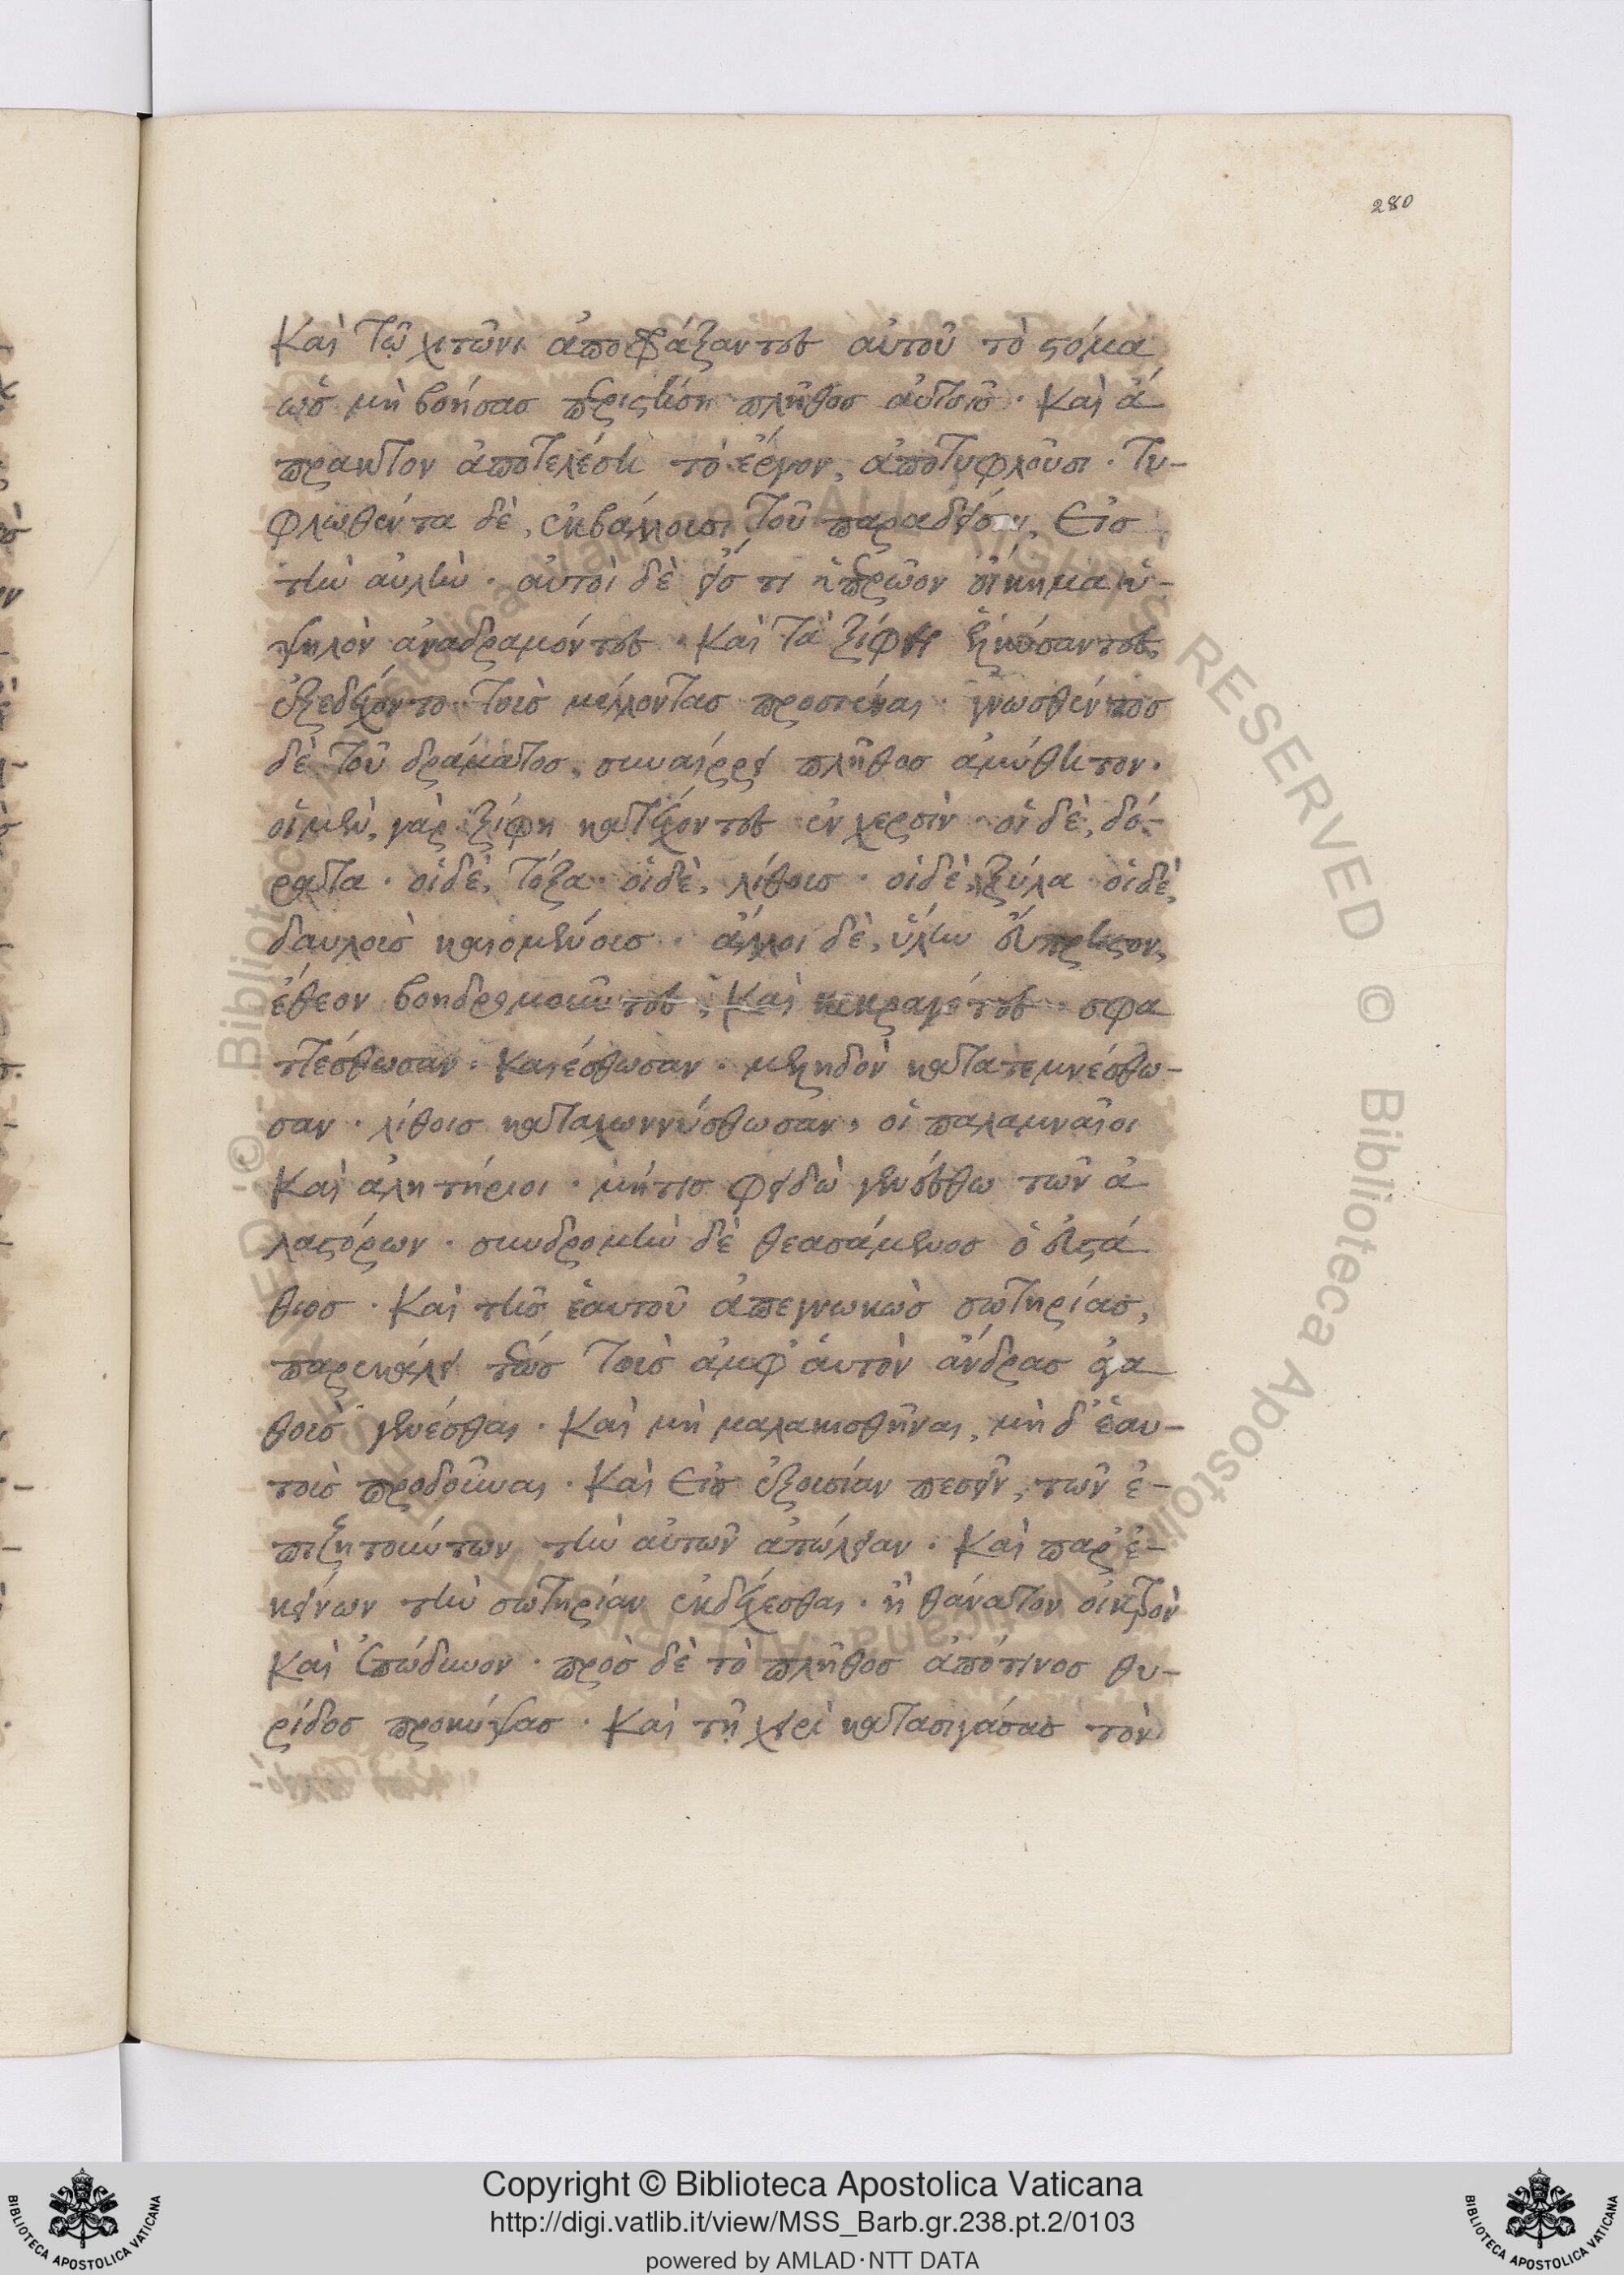 280
Καὶ τῷ χιτῶνι ἀποφράξαντες αὐτοῦ τὸ στόμα
ὡς μὴ βοήσας περιστήση πλῆθος αὐτοῖς · Καὶ ἄ
πρακτον ἀποτελέση τὸ ἔργον, ἀποτυφλοῦσι · Τυ-
φλωθέντα δὲ, ἐκβάλλουσι τοῦ παραδείσου, Εἰς
τὴν αὐλὴν · αὐτοὶ δὲ εἴς τι ἡρῶον οἴκημα ὑ-
ψηλὸν ἀναδραμόντες · Καὶ τὰ ξίφη ἑλκύσαντες,
ἐξεδέχοντο τοὺς μέλλοντας προσιέναι · γνωσθέντος
δὲ τοῦ δράματος, συναίρρει πλῆθος ἀμύθητον ·
οἱ μὲν, γὰρ ξίφη κατέχοντες ἐν χερσὶν · οἱ δὲ, δό-
ρατα · οἱ δὲ, τόξα · οἱ δὲ, λίθους · οἱ δὲ, ξύλα · οἱ δὲ,
δαυλοὺς καιομένους · ἄλλοι δὲ, ὕλην εὔπρηστον,
ἔθεον βοηδρομοῦντες, Καὶ κεκραγότες · σφα
ττέσθωσαν · Καιέσθωσαν · μεληδὸν κατατεμνέσθω-
σαν · λίθοις καταχωννύσθωσαν, οἱ παλαμναῖοι
Καὶ ἀλητήριοι · μήτις φειδὼ γενέσθω τῶν ἀ
λαστόρων · συνδρομὴν δὲ θεασάμενος ὁ εὐστά
θιος · Καὶ τῆς ἑαυτοῦ ἀπεγνωκὼς σωτηρίας,
παρεκάλει τέως τοὺς ἀμφ' αὐτὸν ἄνδρας ἀγα
θοὺς γενέσθαι · Καὶ μὴ μαλακισθῆναι, μὴ δ' ἑαυ-
τοὺς προδοῦναι · Καὶ Εἰς ἐξουσίαν πεσεῖν, τῶν ἐ-
πιζητούντων τὴν αὐτῶν ἀπώλειαν · Καὶ παρ' ἐ-
κείνων τὴν σωτηρίαν ἐκδέχεσθαι · ἢ θάνατον οἰκτρὸν
Καὶ ἐπώδυνον · πρὸς δὲ τὸ πλῆθος ἀπό τινος θυ-
ρίδος προκύψας · Καὶ τῇ χειρὶ κατασιγάσας τὸν
Copyright © Biblioteca Apostolica Vaticana
http://digi.vatlib.it/view/MSS_Barb.gr.238.pt.2/0103
powered by AMLAD·NTT DATA